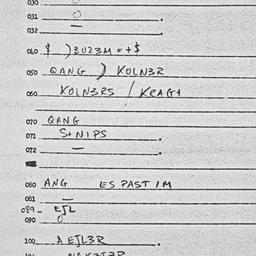 030
031 O
032 —
040 $ )3UZ3M=+$
050 QANG ) KOLN3R
060 KOLN3RS / KRAG+
070 QANG
071 S+NIPS
072 —
060 ANG ES PAST IM
081 —
090 O
100 A EJL3R